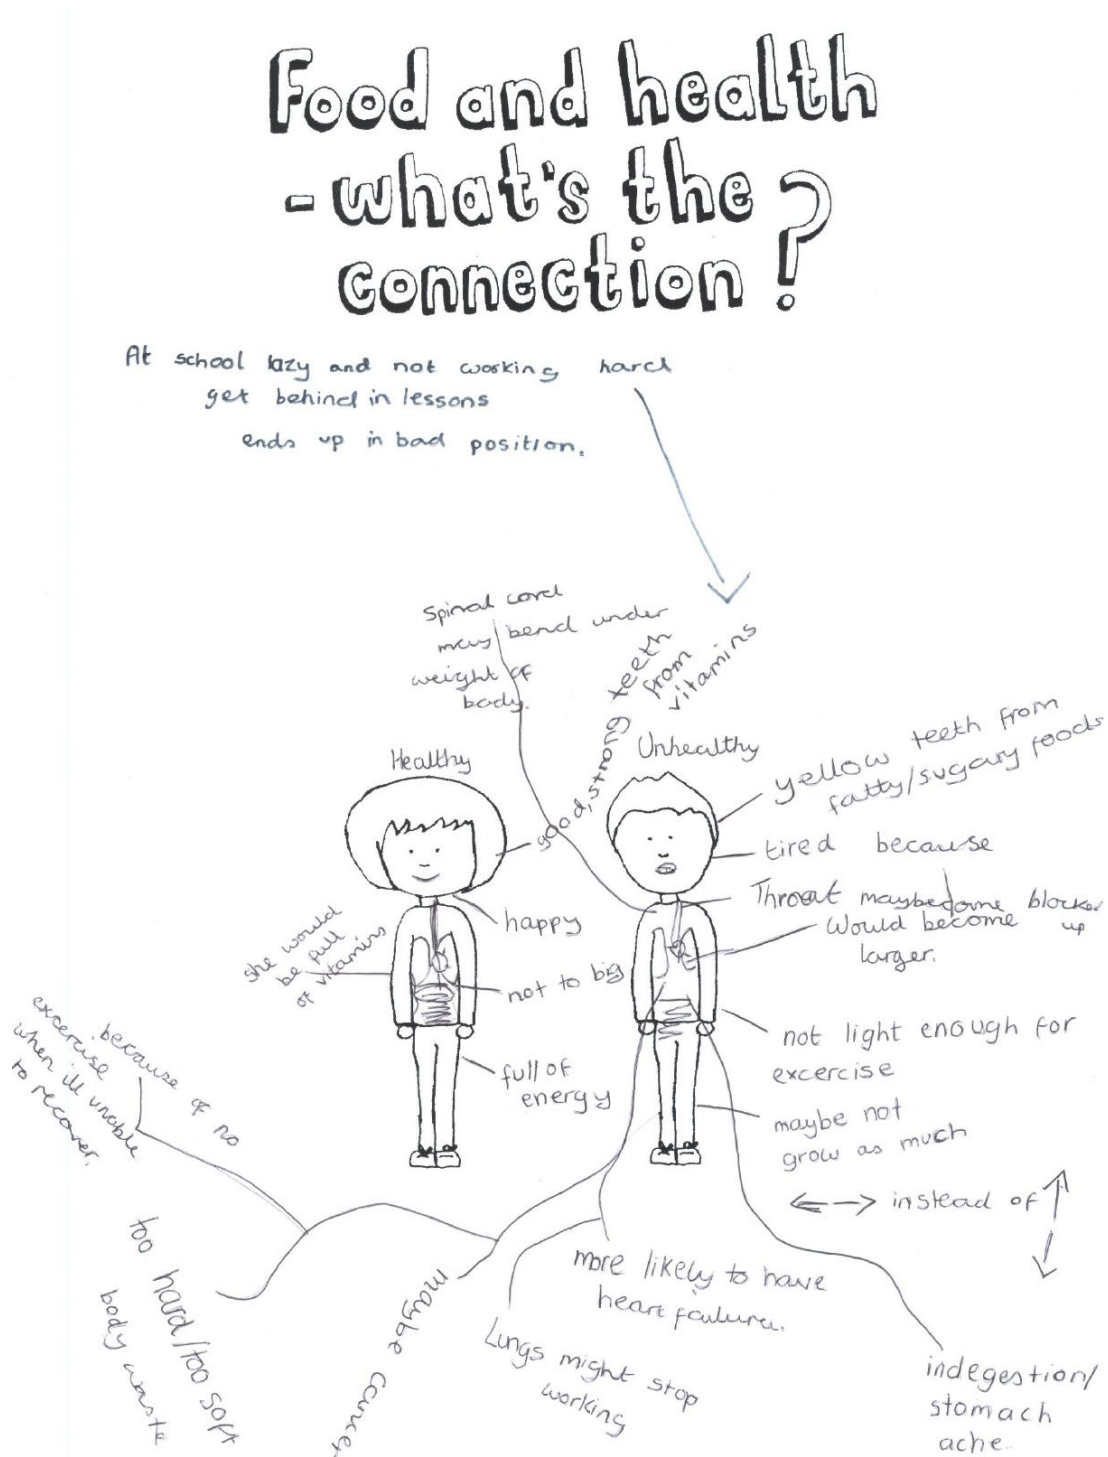 Food and health
- what's the
connection?
At school lazy and not working hard
get behind in lessons
ends up in bad position.
Spinal cord
may bend under
weight of
body.
good, strong teeth
from
vitamins
Healthy
Unhealthy
yellow teeth from
fatty/sugary foods
tired because
Throat maybecome blocked
up
Would become
larger.
happy
she would
be full
of vitamins
not to big
not light enough for
excercise
full of
energy
maybe not
grow as much
<--> instead of ↕
because of no
excercise
when ill unable
to recover.
too hard/too soft
body waste
maybe cancer
more likely to have
heart failure.
Lungs might stop
working
indegestion/
stomach
ache.